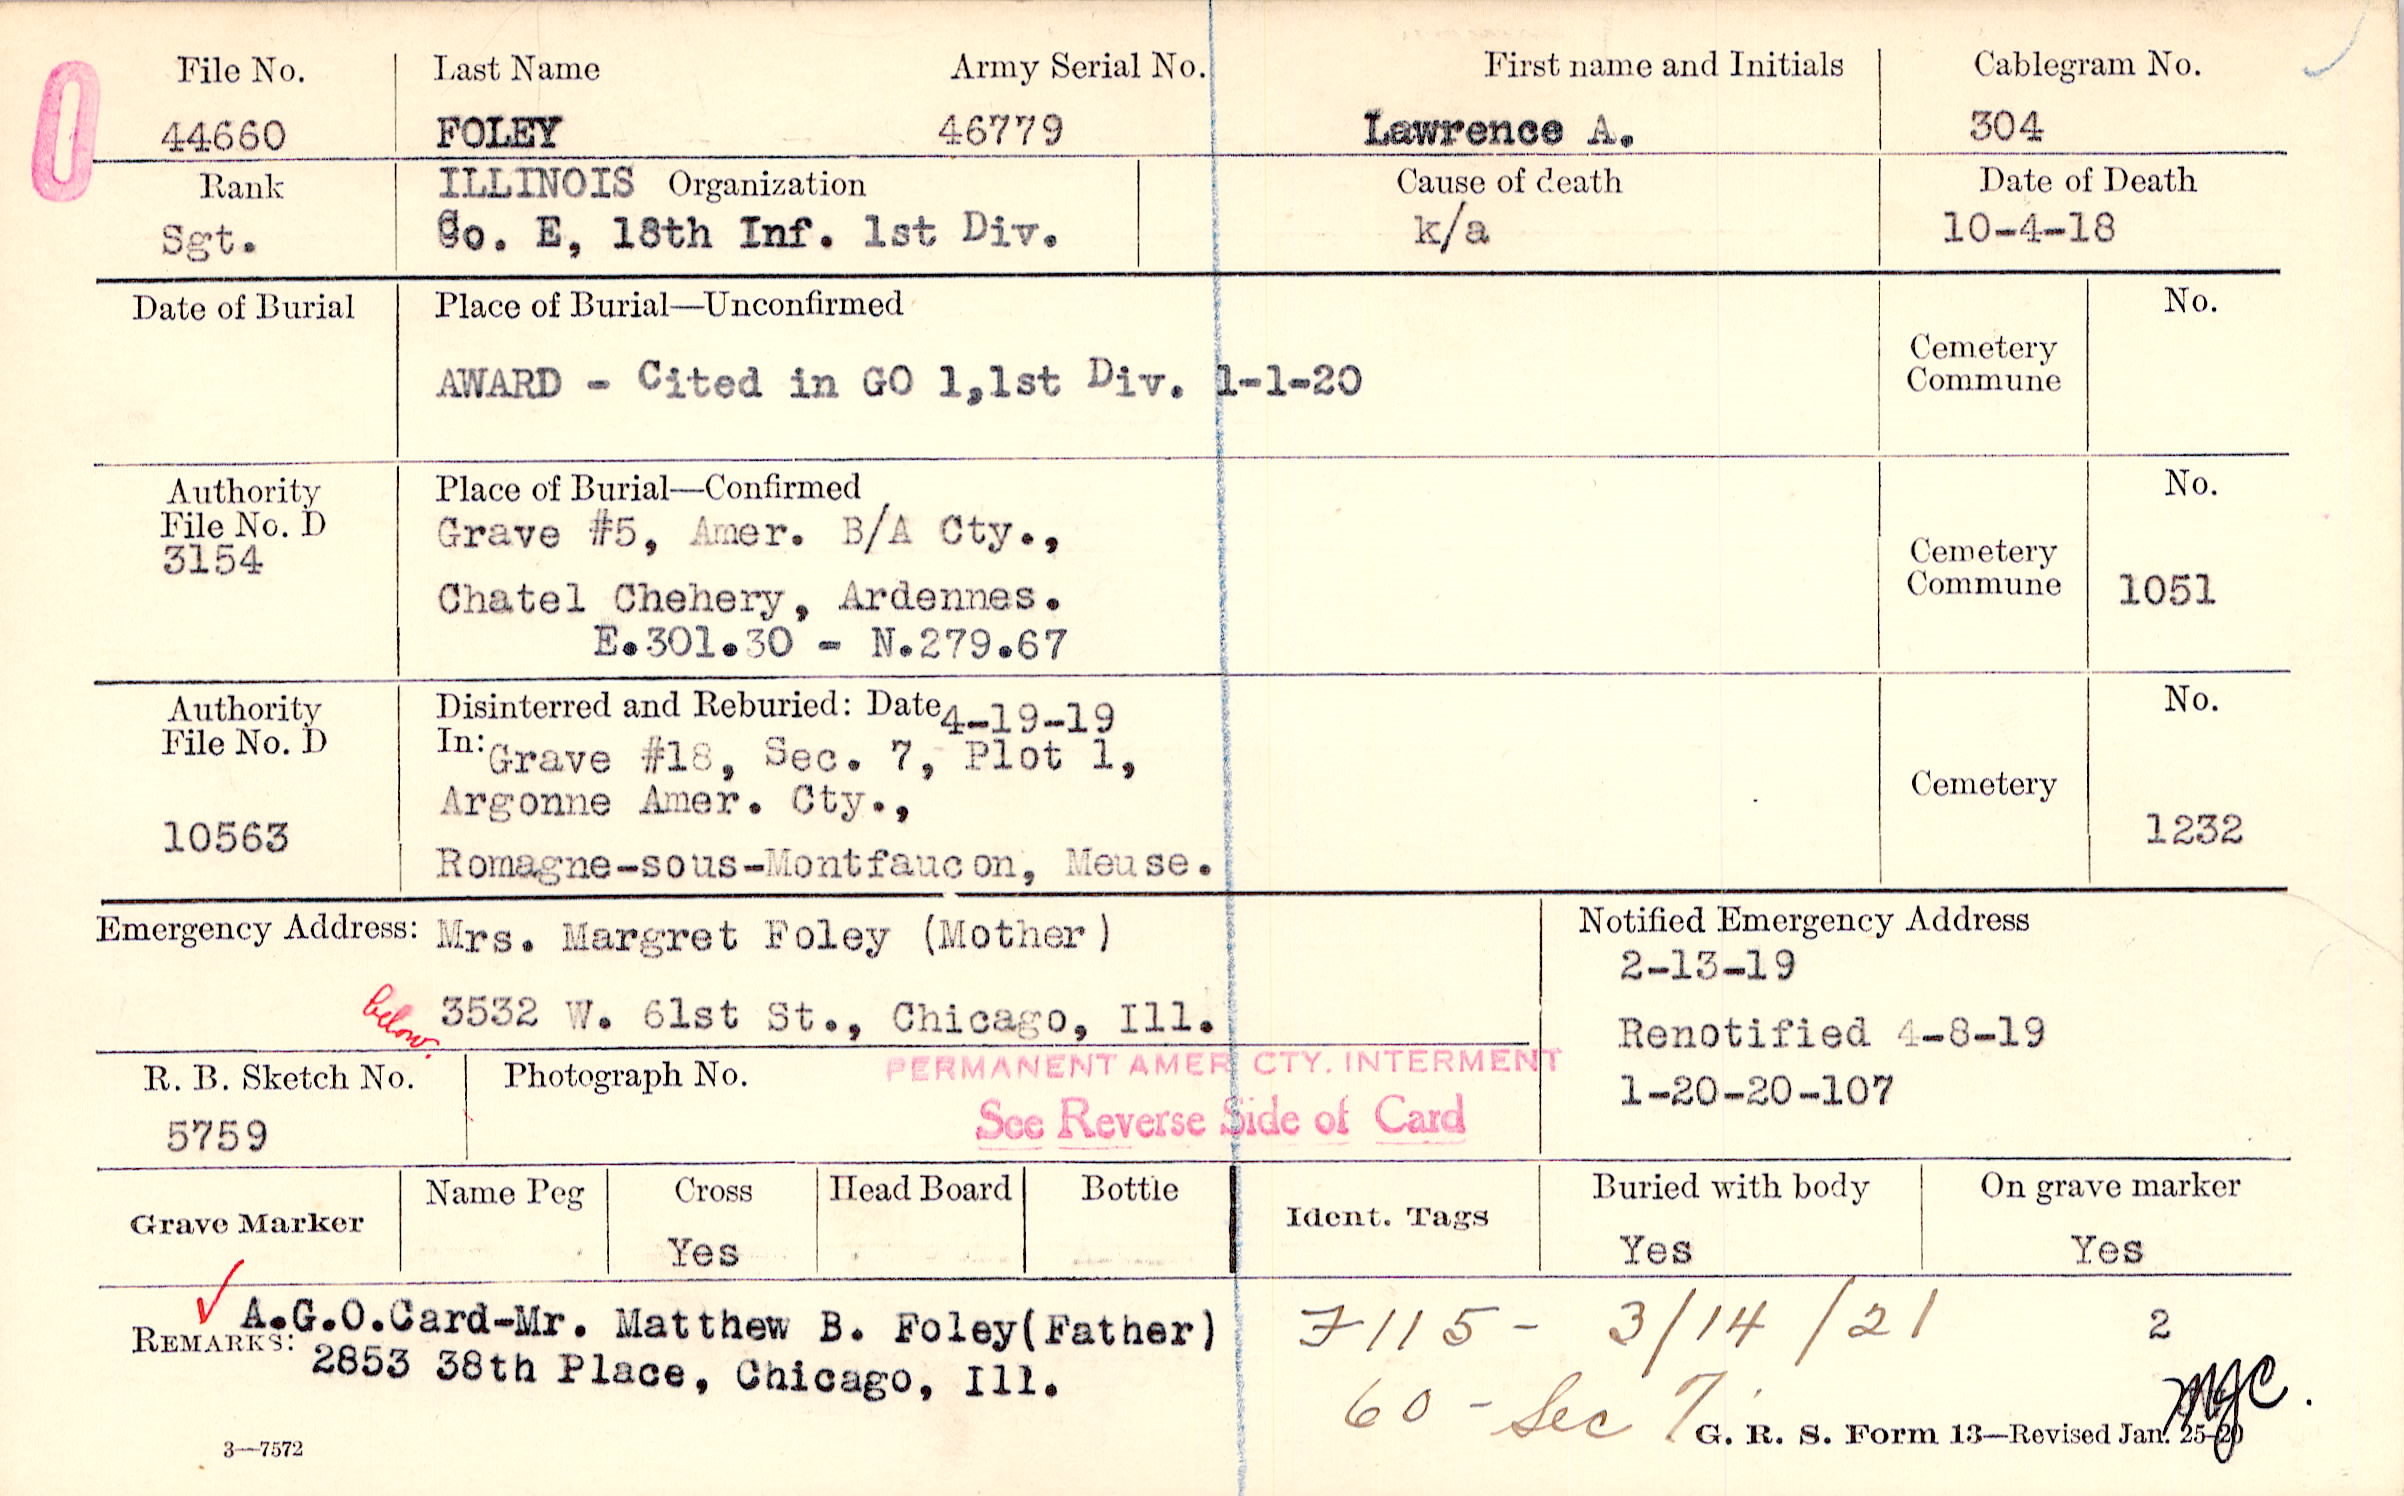 File No. Last Name Army Serial No. First name and Initials Cablegram No.
0
44660 FOLEY 46779 Lawrence A. 304
Rank ILLINOIS Organization Cause of death Date of Death
Sgt. Co. E, 18th Inf. 1st Div. k/a 10-4-18
Date of Burial Place of Burial—Unconfirmed No.
Cemetery
Commune
AWARD - Cited in GO 1,1st Div. 1-1-20
Authority Place of Burial—Confirmed No.
File No. D Grave #5, Amer. B/A Cty.,
3154 Cemetery
Chatel Chehery, Ardennes. Commune 1051
E.301.30 - N.279.67
Authority Disinterred and Reburied: Date 4-19-19 No.
File No. D In: Grave #18, Sec. 7, Plot 1,
Argonne Amer. Cty., Cemetery
10563 1232
Romagne-sous-Montfaucon, Meuse.
Emergency Address: Mrs. Margret Foley (Mother) Notified Emergency Address
2-13-19
below. 3532 W. 61st St., Chicago, Ill. Renotified 4-8-19
R. B. Sketch No. Photograph No. PERMANENT AMER CTY. INTERMENT
1-20-20-107
5759 See Reverse Side of Card
Grave Marker Name Peg Cross Head Board Bottle Ident. Tags Buried with body On grave marker
Yes Yes Yes
A.G.O.Card-Mr. Matthew B. Foley(Father) 7115 - 3/14/21 2
REMARKS: 2853 38th Place, Chicago, Ill. 60 - Sec 7. MJC.
3—7572 G. R. S. Form 13—Revised Jan. 25-20